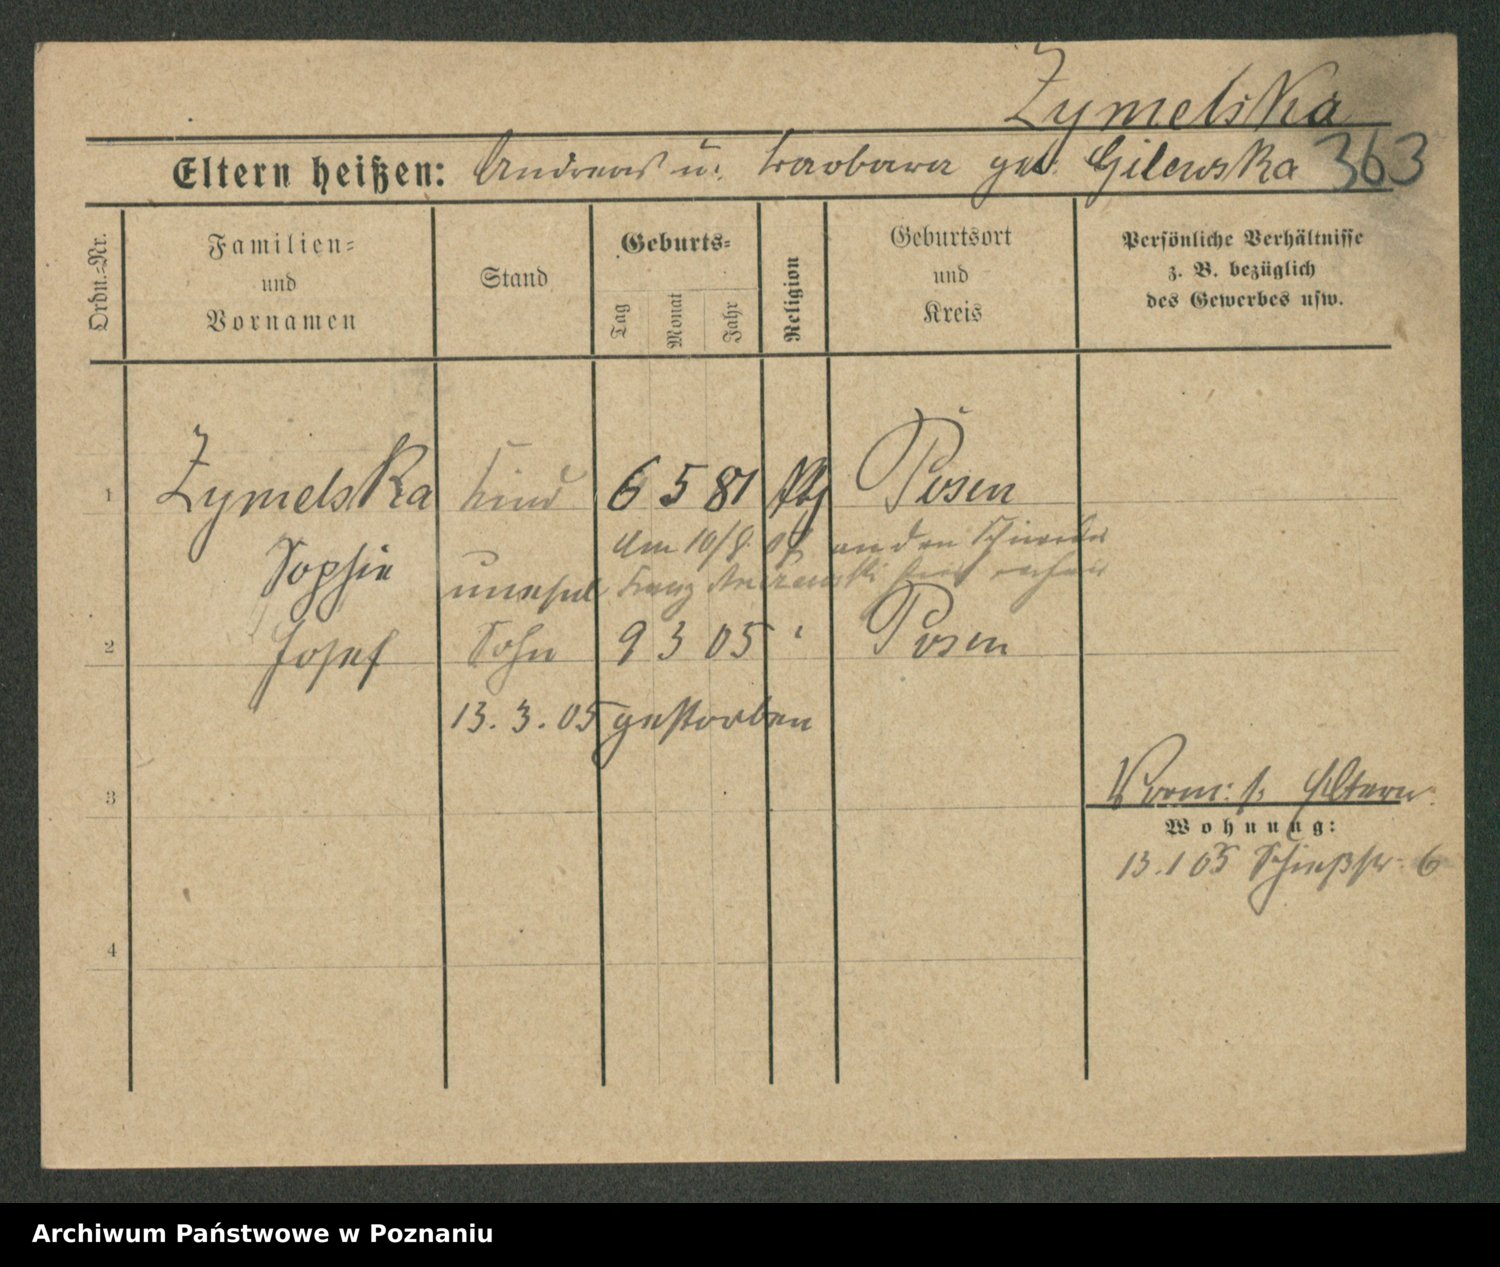 Zymelska
Eltern heißen: Andreas u. Barbara geb. Gilewska 363
Ordn.-Nr.
Familien-
und
Vornamen
Stand
Geburts-
Tag
Monat
Jahr
Religion
Geburtsort
und
Kreis
Persönliche Verhältnisse
z. B. bezüglich
des Gewerbes usw.
1 Zymelska Kind 6 5 81 Posen
Am 10/8. an den
Sophie unehel
2 Josef Sohn 9 3 05 " Posen
13. 3. 05 gestorben
3
Vorm: s. Eltern.
Wohnung:
13. 1 05 Schießstr. 6
4
Archiwum Państwowe w Poznaniu